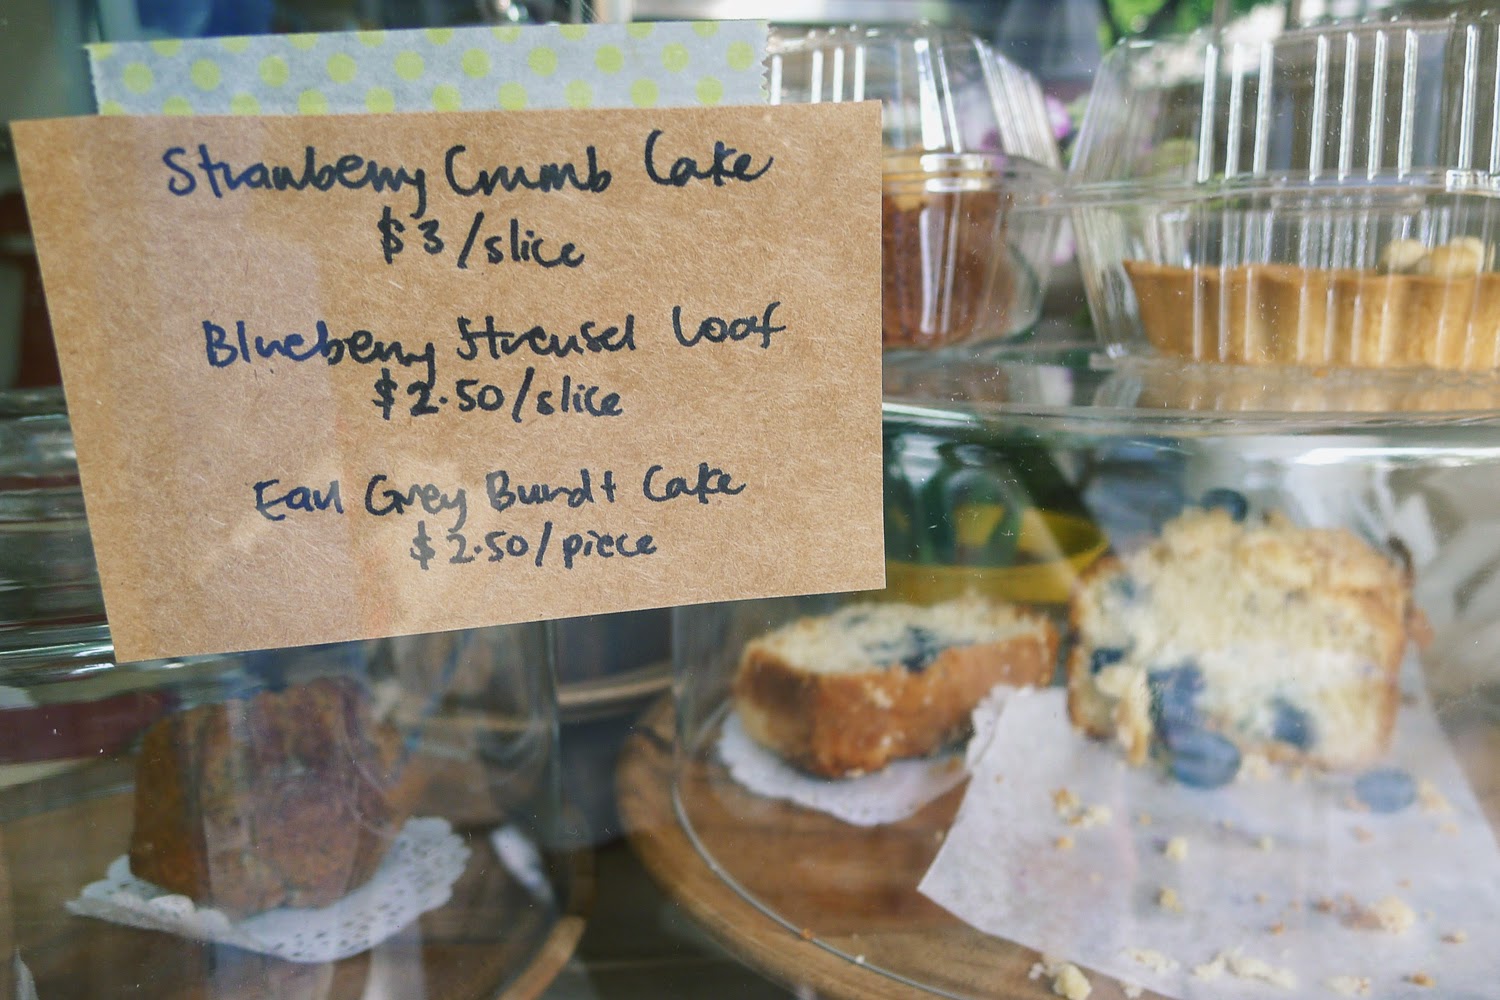 Strawberry Crumb Cake
$3/slice
Blueberry Streusel Loaf
$2.50/slice
Earl Grey Bundt Cake
$2.50/piece